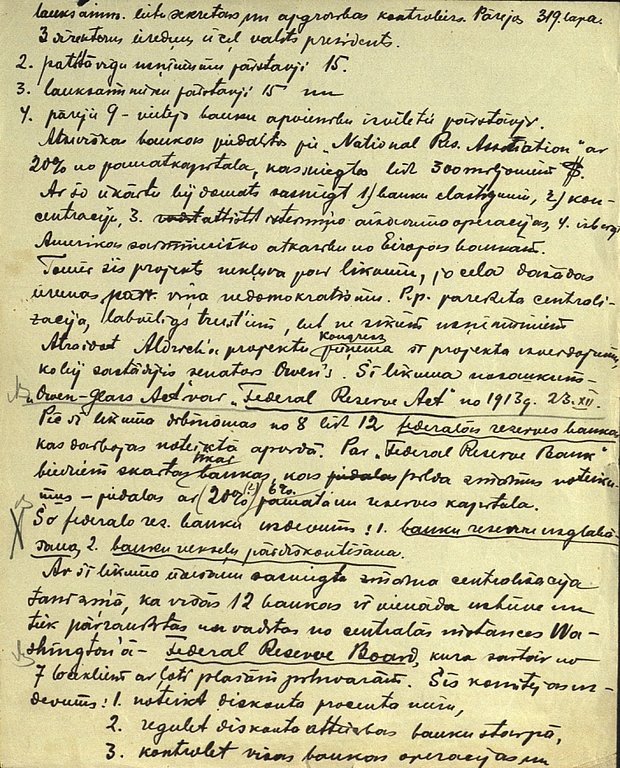 lauksaimn. lietu sekretars un apgrozības kontroliers. Pārejos 319 lapa.
3 direktorus ieceļ valsts prezidents.
2. patstāvīgu uzņēmumu pārstavji 15.
3. lauksaimnieku pārstavji 15 un
4. pārejie 9 - vietejo banku apvienību izvēlētie pārstavji.
Atsevišķas bankas piedalītos pie "National Res. Association" ar
20% no pamatkapitala, kas sniegtos līdz 300 miljoniem $.
Ar šo iekārtu bij domats sasniegt 1) banku elastigumu, 2) kon-
centraciju, 3. attīstīt starptaut. diskonto operacijas, 4. izbeigt
Amerikas saimniecisko atkarību no Eiropas bankām.
Tomēr šis projekts nekļuva par likumu, jo cela dažādas
viņa nedemokratismu. P.p. pareizeta centrali-
zacija, labvēligs trust'iem, bet ne sīkiem uzņēmumiem
Atraidot Aldrich'a projektu Kongress pieņēma projekta izveidojumu,
ko bij sastādijis senators Owen's. Šī likuma nosaukums -
"Owen-Glass Act" var "Federal Reserve Act" no 1913 g. 23. XII.
Pie šī likuma dibinamas no 8 līdz 12 federalās reserves bankas
kas darbojas noteiktā apvidū. Par "Federal Reserve Bank"
biedriem skaitas tikai bankas, kas pilda zināmus noteiku-
mus - piedalas ar (20%) 6% pamata un reserves kapitala.
Šo federalo rez. banku uzdevums: 1. banku reservu uzglabā-
šana, 2. banku vekseļu pārdiskontēšana.
Ar šī likuma sasniegta zināma centralizacija
tanī ziņā, ka visās 12 bankas ir vienāda uzbūve un
tiek pārraudzītas un vadītas no centralās instances Wa-
shington'ā - Federal Reserve Board, kura sastāv no
7 locekļiem ar ļoti plašām pilnvarām. Šīs komitejas uz-
devums: 1. noteikt diskonta procenta mēru,
2. regulēt diskonta attiecības banku starpā,
3. kontrolēt visas bankas operacijas un